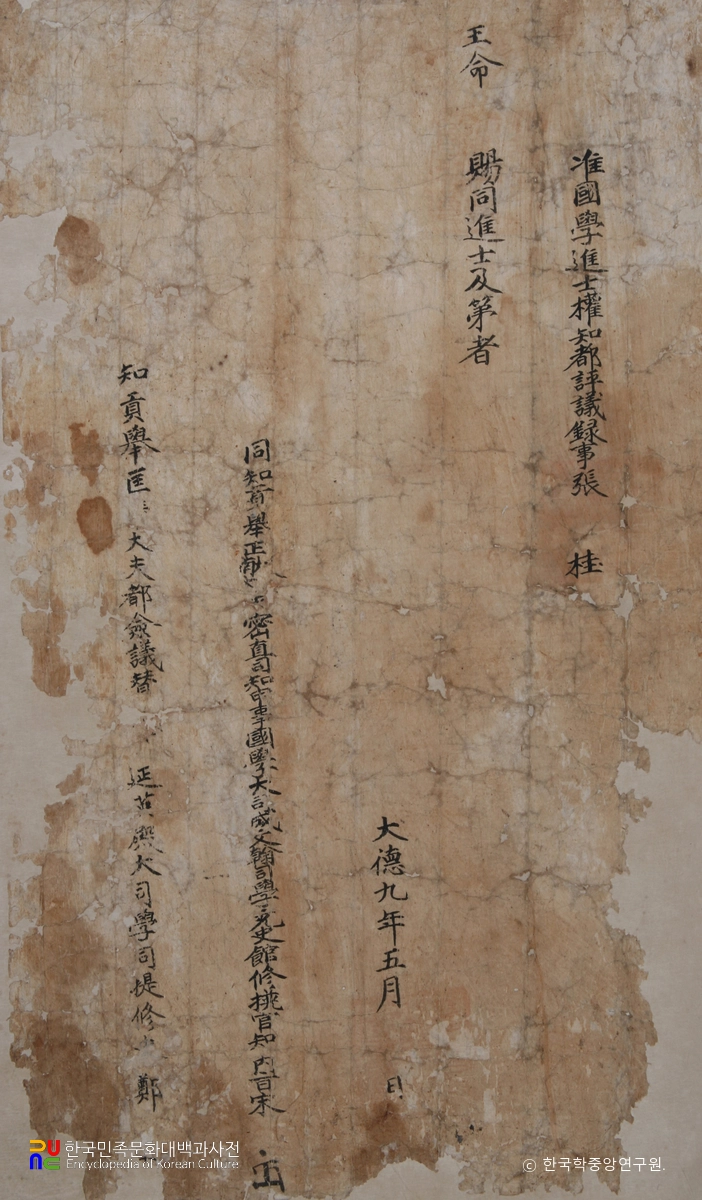 准國學進士權知都評議錄事張 桂
王命 賜同進士及第者
大德九年五月 日
同知貢擧正獻 密直司知申事國學大司成文翰司學 史館修撰官知內旨宋
知貢擧匡 大夫都僉議贊 延英殿大司學司提修 鄭
한국민족문화대백과사전
Encyclopedia of Korean Culture
© 한국학중앙연구원.